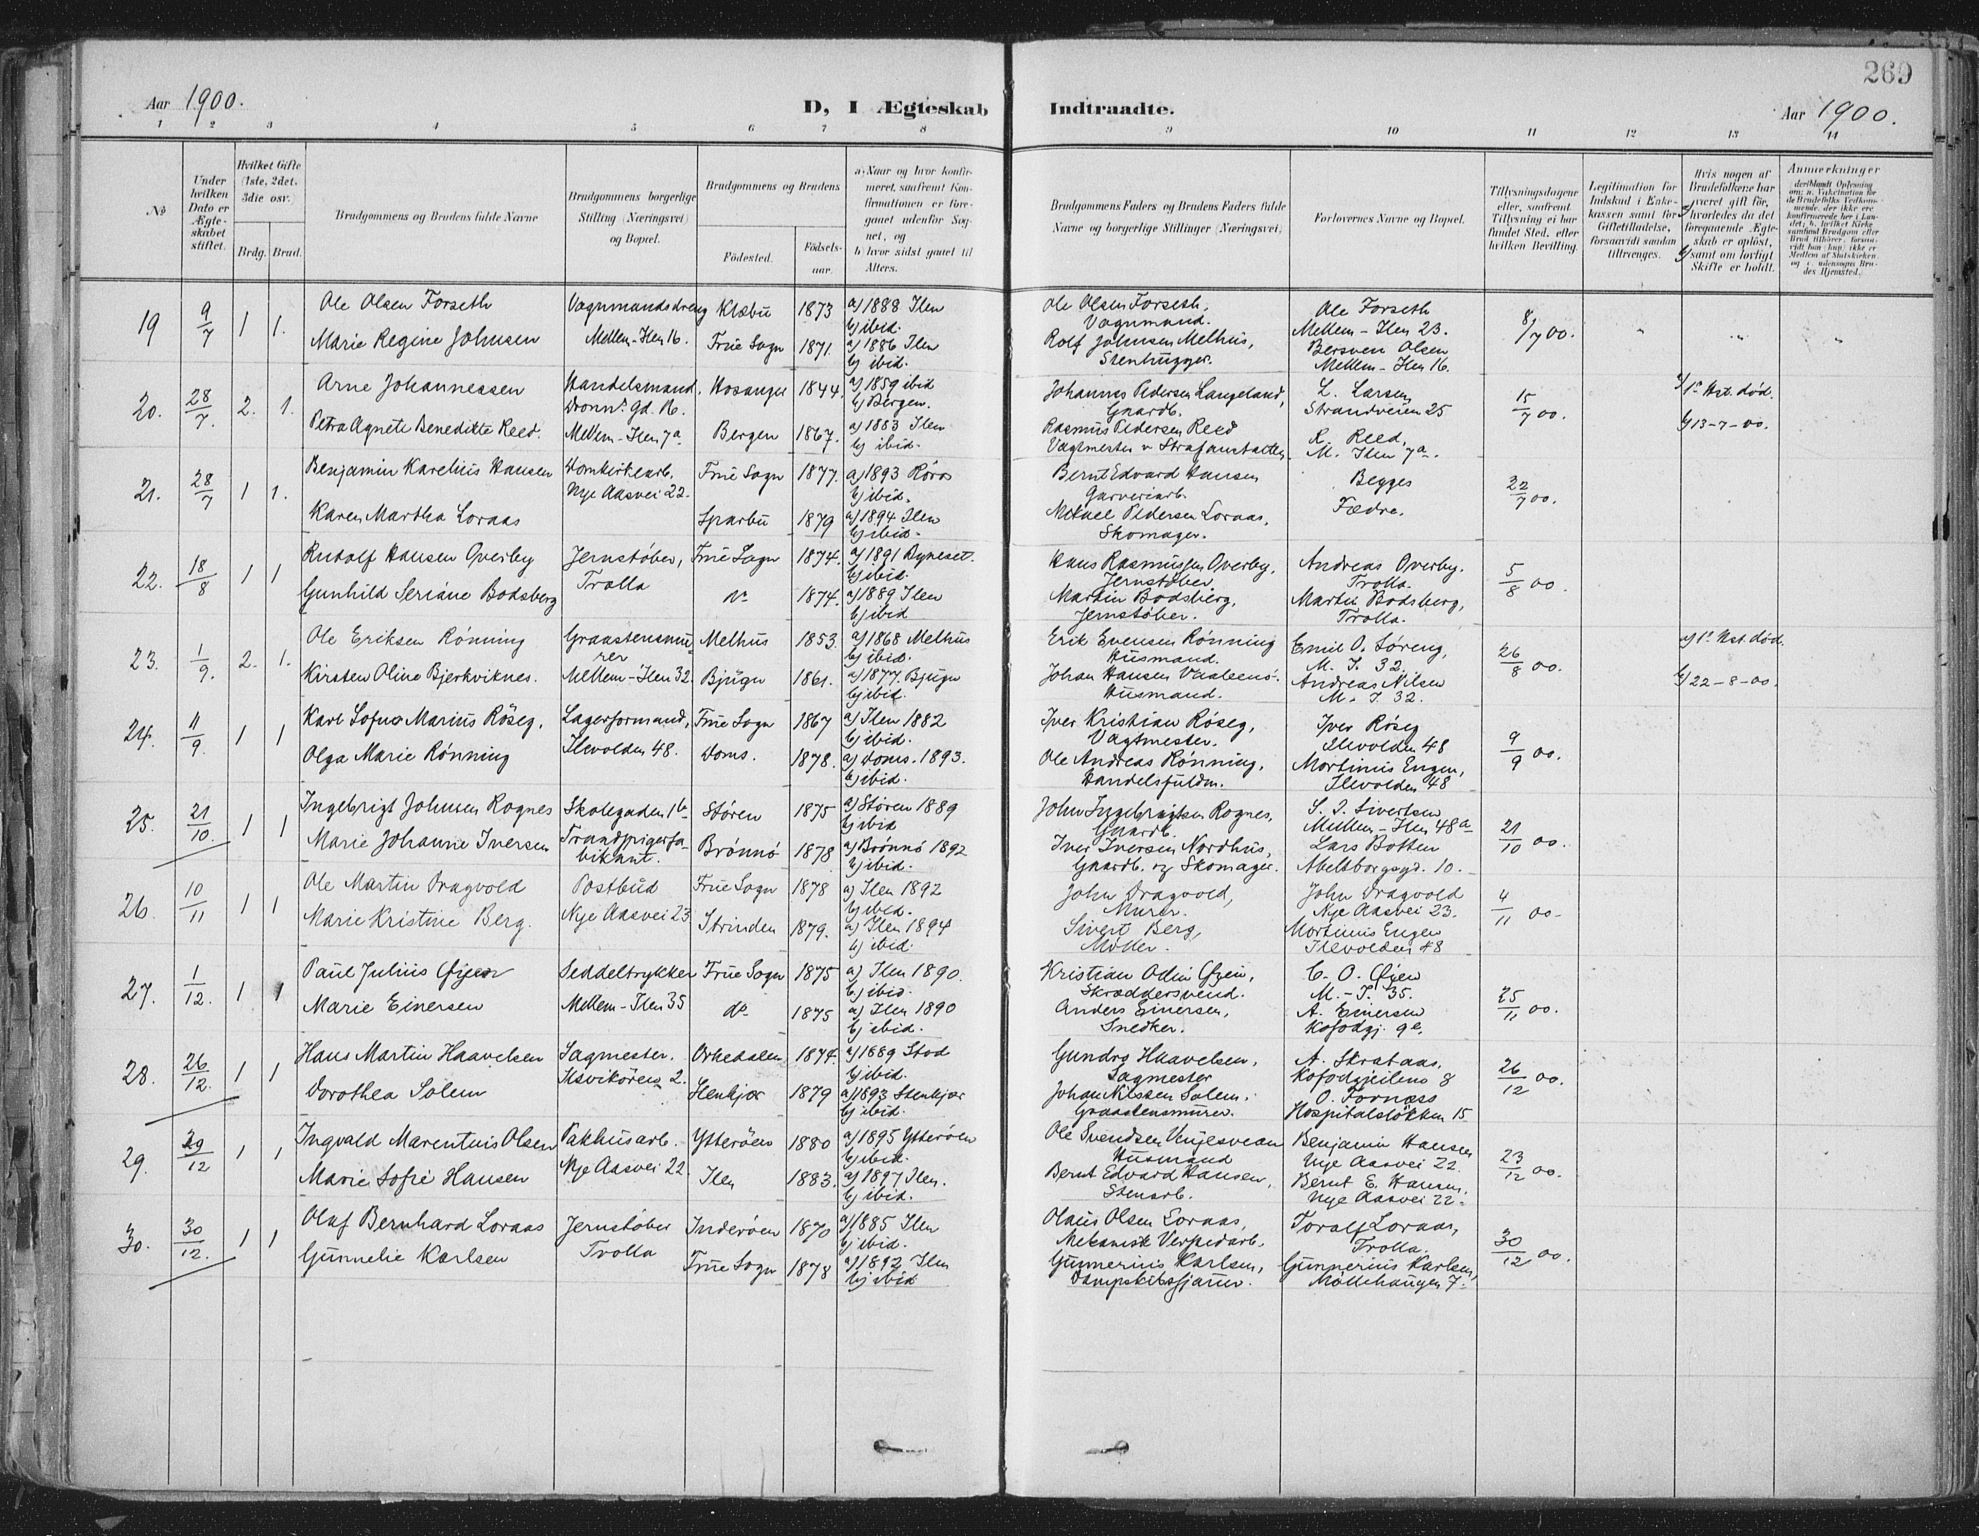 269
Aar 1900.
D, I Ægteskab Indtraadte.
Aar 1900.
1 2 3 4 5 6 7 8 9 10 11 12 13 14
No
Under hvilken Dato er Ægteskabet stiftet.
Hvilket Gifte (1ste, 2det, 3die osv.
Brdg. Brud.
Brudgommens og Brudens fulde Navne
Brudgommens borgerlige Stilling (Næringsvei) og Bopæl.
Brudgommens og Brudens
Födested.
Födselsaar.
a) Naar og hvor konfirmeret, saafremt Konfirmationen er foregaaet udenfor Sognet, og
b) hvor sidst gaaet til Alters.
Brudgommens Faders og Brudens Faders fulde Navne og borgerlige Stillinger (Næringsvei)
Forlovernes Navne og Bopæl.
Tillysningsdagene eller, saafremt Tillysning ei har fundet Sted, efter hvilken Bevilling.
Legitimation for Indskud i Enkekassen samt for Giftetilladelse, forsaavidt saadan tiltrænges.
Hvis nogen af Brudefolkene har været gift før, hvorledes da det foregaaende Ægteskab er opløst, samt om lovligt Skifte er holdt.
Anmærkninger
19 9/7 1 1. Ole Olsen Forseth Vognmandsdreng Klæbu 1873 a) 1888 Ilen
b) ibid.
Marie Regine Johnsen Mellem-Ilen 16. Frue Sogn 1871. a) 1886 Ilen
b) ibid.
Ole Olsen Forseth, Ole Forseth 8/7 00.
Vognmand. Mellem-Ilen 23.
Rolf Johnsen Melhus, Bersven Olsen
Stenhugger. Mellem-Ilen 16.
20. 28/7. 2. 1. Arne Johannessen Handelsmand, Hosanger 1844. a) 1859 ibid
Dronn. gd. 16. b) Bergen.
Petra Agnete Benedikte Reed. Mellem-Ilen 7a Bergen 1867. a) 1883 Ilen
b) ibid.
Johannes Pedersen Langeland, L. Larsen 15/7 00. a) 1e Hst. død.
Gaardb. Strandveien 25
Rasmus Pedersen Reed R. Reed, b) 13-7-00.
Vagtmester v. Strafanstalten M. Ilen 7a.
21. 28/7 1 1. Benjamin Karelius Hansen Domkirkearb. Frue Sogn 1877. a) 1893 Røros
Nye Aasvei 22. b) ibid.
Karen Martha Loraas Sparbu 1879 a) 1894 Ilen
b) ibid.
Bernt Edvard Hansen Begges 22/7 00.
Garveriarb. Fædre.
Mikael Pedersen Loraas,
Skomager.
22. 18/8 1 1 Rudolf Hansen Overby Jernstøber, Frue Sogn 1874. a) 1891 Bynesset.
Trolla b) ibid.
Gunhild Seriane Bodsberg do 1874. a) 1889 Ilen
b) ibid
Hans Rasmussen Overby, Andreas Overby. 5/8 00.
Jernstøber Trolla.
Martin Bodsberg, Martin Bodsberg,
Jernstøber. Trolla.
23. 1/9. 2. 1. Ole Eriksen Rönning Graastensmurer Melhus 1853. a) 1868 Melhus
b) ibid.
Kirsten Oline Bjerkviknes. Mellem-Ilen 32. Bjugn 1861. a) 1877. Bjugn
b) ibid.
Erik Evensen Rönning Emil O. Søreng, 26/8 00. a) 1e Hst. død.
Husmand. M. I. 32.
Johan Hansen Andreas Nilsen b) 22-8-00.
Husmand. M. I. 32.
24. 11/9. 1 1 Karl Sofus Marius Röseg, Lagerformand, Frue Sogn 1867 a) Ilen 1882
b) ibid.
Olga Marie Rönning Ilevolden 48. Doms. 1878. a) Doms. 1893.
b) ibid.
Iver Kristian Röseg, Iver Röseg 9/9 00.
Vagtmester. Ilevolden 48
Ole Andreas Rönning, Martinus Engen,
Handelsfuldm. Ilevolden 48
25. 21/10. 1 1 Ingebrigt Johnsen Rognes Skolegaden 1b Støren 1875 a) Støren 1889
b) ibid
Marie Johanne Iversen Brönnö 1878 a) Brönnö 1892
b) ibid.
John Ingebrigtsen Rognes, S. J. Sivertsen 21/10 00.
Gaardb. Mellem-Ilen 48a
Iver Iversen Nordhus, Lars Botten
Gaardb. og Skomager. Abelsborggd. 10.
26. 10/11 1 1 Ole Martin Dragvold Postbud Frue Sogn 1878 a) Ilen 1892
b) ibid.
Marie Kristine Berg. Nye Aasvei 23 Strinden 1879. a) Ilen 1894
b) ibid.
John Dragvold, John Dragvold 4/11 00.
Murer. Nye Aasvei 23.
Sivert Berg, Martinus Engen
Møller. Ilevolden 48
27. 1/12. 1 1 Paul Julius Øjen Seddeltrykker Frue Sogn 1875 a) Ilen 1890.
b) ibid.
Marie Einersen Mellem-Ilen 35 do 1875 a) Ilen 1890
b) ibid.
Kristian Odin Øjen, C. O. Øjen 25/11 00.
Skræddersvend. M.-I. 35.
Anders Einersen, A. Einersen
Snedker. Kofodgj. 9e.
28. 26/12. 1 1 Hans Martin Haavelsen Sagmester. Orkedalen 1874. a) 1889 Stod
b) ibid.
Dorothea Solem Ilsvikören 2. Stenkjær 1879 a) 1893 Stenkjær
b) ibid.
Gundro Haavelsen, A. Skrataas, 26/12 00.
Sagmester Kofodgjeilens 8
Johan Nilsen Solem, O. Fornæss
Graastensmurer. Hospitalsløkken 15
29. 29/12 1 1 Ingvald Marentius Olsen Pakhusarb. Ytterøen 1880 a) 1895 Ytterøen
b) ibid.
Marie Sofie Hansen Nye Aasvei 22 Ilen 1883. a) 1897 Ilen.
b) ibid.
Ole Svendsen Benjamin Hansen 23/12 00.
Husmand Nye Aasvei 22.
Bernt Edvard Hansen, Bernt E. Hansen,
Stenarb. Nye Aasvei 22.
30. 30/12. 1 1 Olaf Bernhard Loraas Jernstøber Inderøen 1870 a) 1885 Ilen
b) ibid.
Gunnelie Karlsen Trolla Frue Sogn 1878 a) 1892 Ilen
b) ibid
Olaus Olsen Loraas, Toralf Loraas, 30/12 00.
Mekanisk Verkstedarb. Trolla.
Gunnerius Karlsen, Gunnerius Karlsen,
Møllehaugen 7.